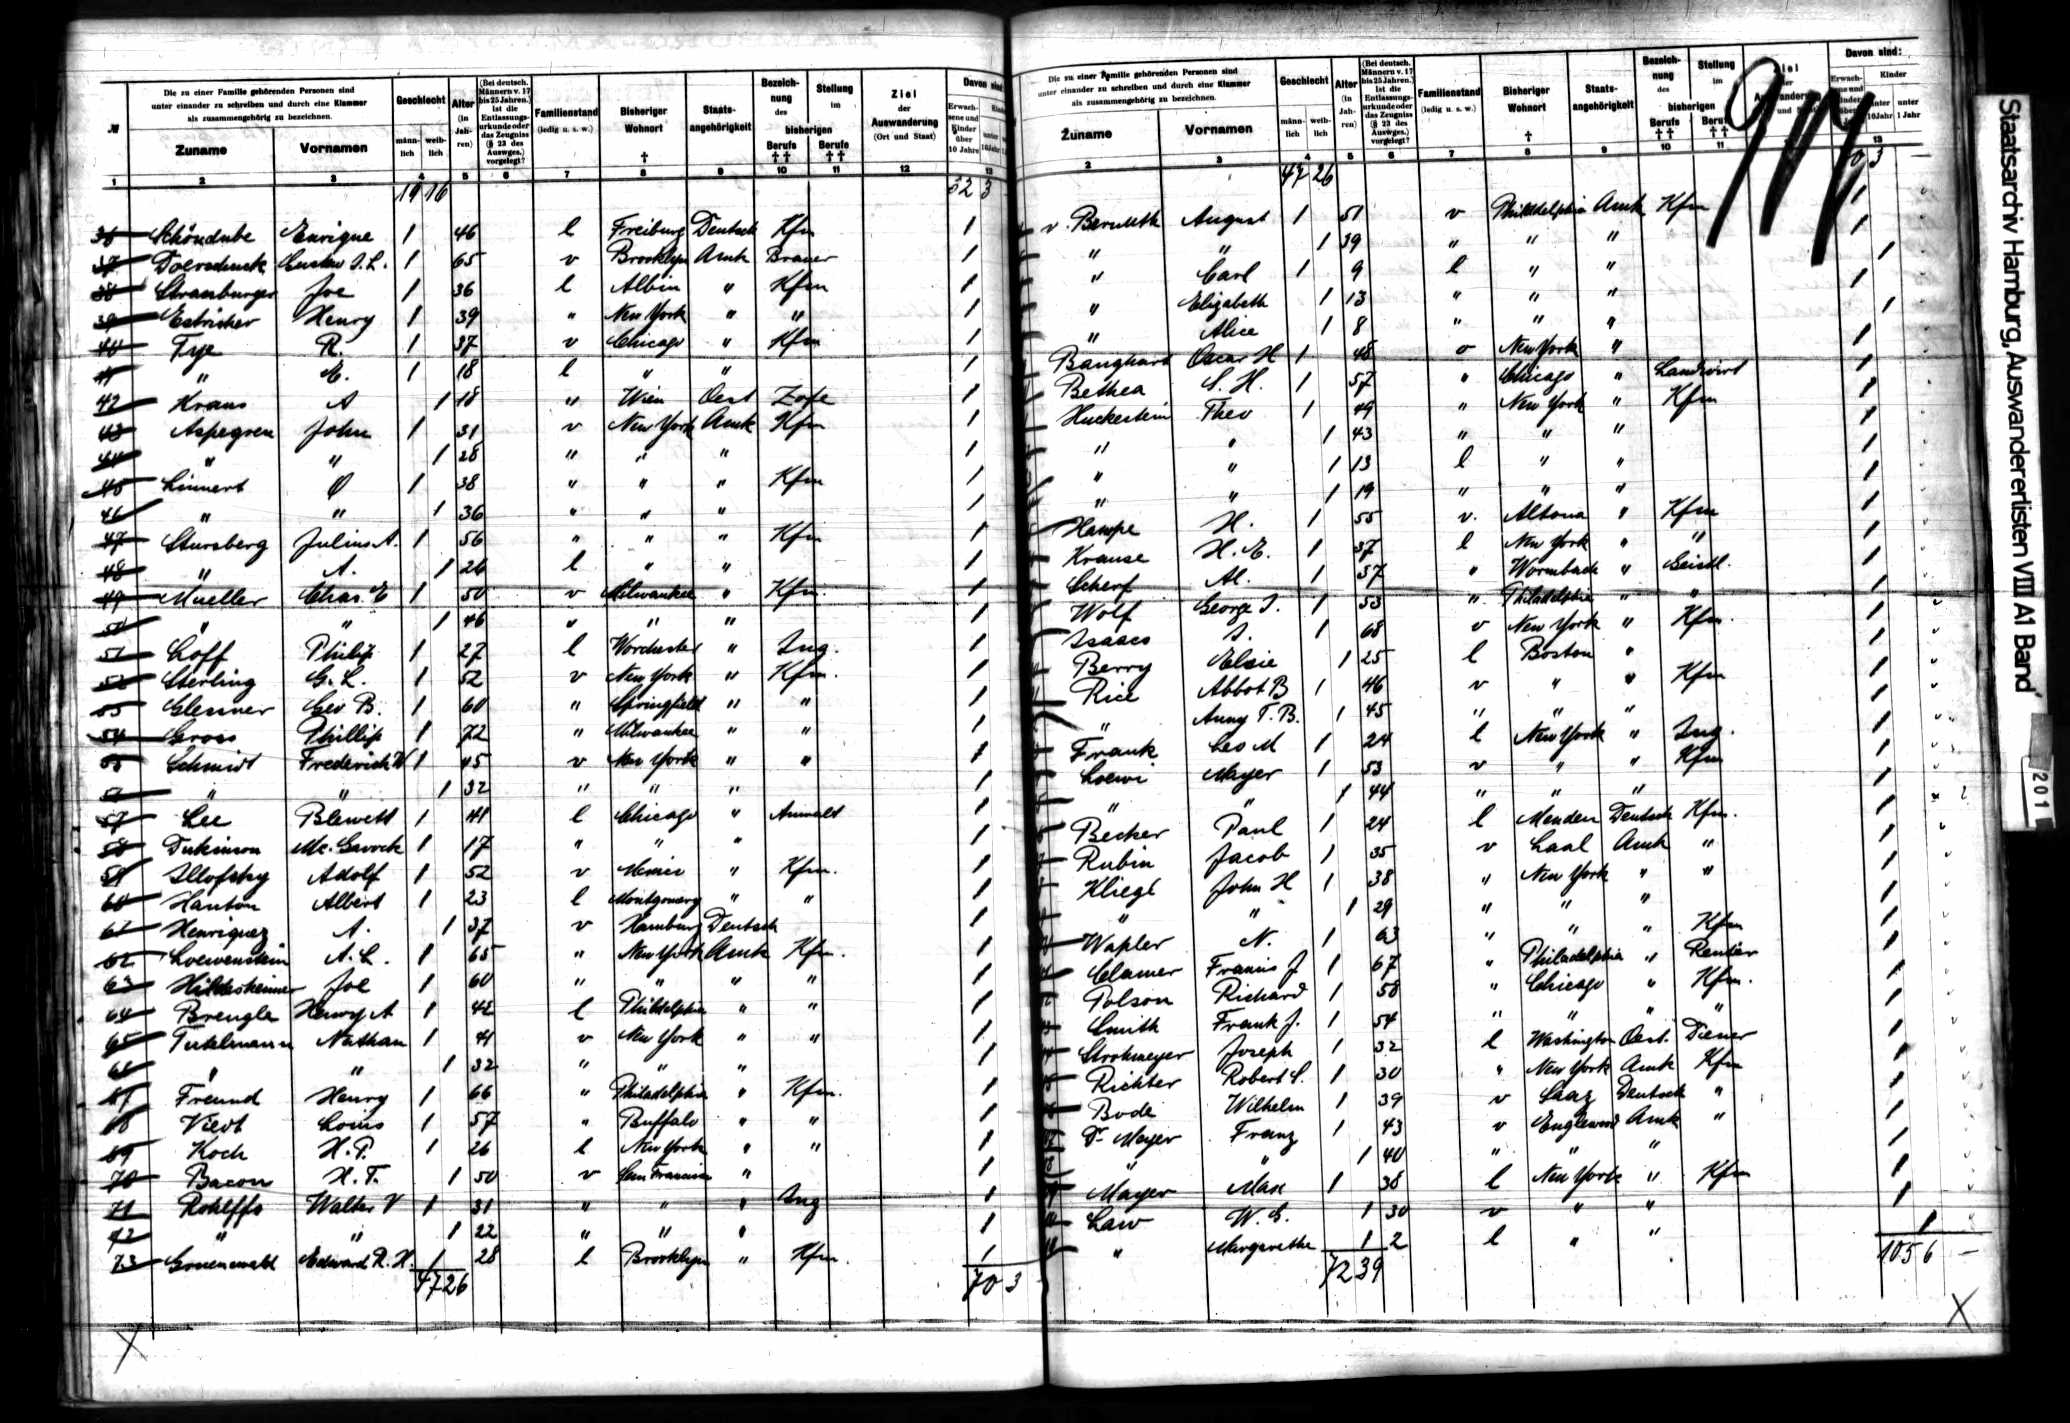 Die zu einer Familie gehörenden Personen sind unter einander zu schreiben und durch eine Klammer als zusammengehörig zu bezeichnen.
№ Zuname Vornamen Geschlecht männlich weiblich Alter (in Jahren) (Bei deutsch. Männern v. 17 bis 25 Jahren.) Ist die Entlassungsurkunde oder das Zeugniss (§ 23 des Auswges.) vorgelegt? Familienstand (ledig u. s. w.) Bisheriger Wohnort † Staatsangehörigkeit Bezeichnung des bisherigen Berufs †† Stellung im bisherigen Berufe †† Ziel der Auswanderung (Ort und Staat) Davon sind
1 2 3 4 5 6 7 8 9 10 11 12 13
19 16 52 3
36 Schöndube Enrique 1 46 l Freiburg Deutsch Kfm 1
37 Gustav J. L. 1 65 v Brooklyn Amk Brauer 1
38 Strassburger Joe 1 36 l Albin " Kfm 1
39 Henry 1 39 " New York " " 1
40 Frye R. 1 37 v Chicago " Kfm 1
41 " E. 1 18 l " " 1
42 Kraus A 1 18 " Wien Oest Zofe 1
43 Aspegren John 1 31 v New York Amk Kfm 1
44 " " 1 28 " " " 1
45 Linnert O 1 38 " " " Kfm 1
46 " " 1 36 " " " 1
47 Stursberg Julius A. 1 56 " " " Kfm 1
48 " A. 1 26 l " " 1
49 Mueller Chas. E 1 50 v Milwaukee " Kfm. 1
50 " " 1 46 " " " 1
51 Loff Philip 1 27 l Worchester " Ing. 1
52 Sterling G. L. 1 52 v New York " Kfm. 1
53 Glessner Geo B. 1 60 " Springfield " " 1
54 Gross Phillip 1 72 " Milwaukee " " 1
55 Schmidt Frederick W 1 45 v New York " " 1
56 " " 1 32 " " " 1
57 Lee Blewett 1 41 l Chicago " Anwalt 1
58 Dickinson Mc. Gavock 1 17 " " " 1
59 Illofsky Adolf 1 52 v " Kfm. 1
60 Hanton Albert 1 23 l Montgomery " " 1
61 Henriquez A. 1 37 v Hamburg Deutsch 1
62 Loewenstein A. L. 1 65 " New York Amk Kfm. 1
63 Hildesheimer Joe 1 60 " " " " 1
64 Brengle Henry A 1 42 l Philadelphia " " 1
65 Nathan 1 41 v New York " " 1
66 " " 1 32 " " " 1
67 Freund Henry 1 66 " Philadelphia " Kfm. 1
68 Viedt Louis 1 57 " Buffalo " " 1
69 Koch H. P. 1 26 l New York " " 1
70 Bacon H. F. 1 50 v San Francisco " 1
71 Rohlffs Walter V 1 31 " " " Ing 1
72 " " 1 22 " " " 1
73 Gruenewald Edward R. H. 1 28 l Brooklyn " Kfm. 1
47 26 70 3
Die zu einer Familie gehörenden Personen sind unter einander zu schreiben und durch eine Klammer als zusammengehörig zu bezeichnen.
Zuname Vornamen Geschlecht männlich weiblich Alter (in Jahren) (Bei deutsch. Männern v. 17 bis 25 Jahren.) Ist die Entlassungsurkunde oder das Zeugniss (§ 23 des Auswges.) vorgelegt? Familienstand (ledig u. s. w.) Bisheriger Wohnort † Staatsangehörigkeit Bezeichnung des bisherigen Berufs †† Stellung im Davon sind: Kinder unter 10 Jahr unter 1 Jahr
2 3 4 5 6 7 8 9 10 11 13
47 26
v. Bernuth August 1 51 v Philadelphia Amk Kfm 1
" " 1 39 " " " 1
" Carl 1 9 l " " 1
" Elizabeth 1 13 " " " 1
" Alice 1 8 " " " 1
Banghart Oscar H 1 48 v New York " 1
Bethea S. H. 1 57 " Chicago " Landwirt 1
Huckestein Theo 1 49 " New York " Kfm 1
" " 1 43 " " " 1
" " 1 13 l " " 1
" " 1 19 " " " 1
Hampe H. 1 55 v. Altona " Kfm 1
Krause H. E. 1 37 l New York " " 1
Scherf Al. 1 57 " Wormbach " Geistl. 1
Wolf George J. 1 53 " Philadelphia " " 1
Isaacs S. 1 68 v New York " Kfm. 1
Berry Elsie 1 25 l Boston " 1
Rice Abbot B 1 46 v " " Kfm 1
" Anny T. B. 1 45 " " " 1
Frank Leo M 1 24 l New York " Ing. 1
Loewi Mayer 1 53 v " " Kfm 1
" " 1 44 " " " 1
Becker Paul 1 24 l Menden Deutsch Kfm. 1
Rubin Jacob 1 35 v Laal Amk " 1
Kliegl John H 1 38 " New York " " 1
" " 1 29 " " " 1
Wapler N. 1 63 " " " Kfm 1
Clamer Francis J 1 67 " Philadelphia " Rentier 1
Polson Richard 1 58 " Chicago " Kfm. 1
Smith Frank J. 1 54 " " " " 1
Strohmeyer Joseph 1 32 l Washington Oest. Diener 1
Richter Robert S. 1 30 " New York Amk Kfm 1
Bode Wilhelm 1 39 v Saaz Deutsch " 1
Dr Mayer Franz 1 43 v Englewood Amk " 1
" " 1 40 " " " 1
Mayer Max 1 38 l New York " Kfm 1
Law W. G. 1 30 v " " 1
" Margarethe 1 2 l " " 1
72 39 105 6 —
Staatsarchiv Hamburg, Auswandererlisten VIII A1 Band
201